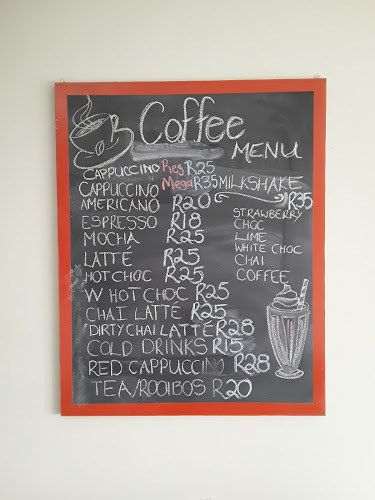 Coffee
MENU
CAPPUCCINO Reg R25
CAPPUCCINO Mega R35
AMERICANO R20
ESPRESSO R18
MOCHA R25
LATTE R25
HOT CHOC R25
W HOT CHOC R25
CHAI LATTE R25
DIRTY CHAI LATTE R28
COLD DRINKS R15
RED CAPPUCCINO R28
TEA/ROOIBOS R20
MILKSHAKE
R35
STRAWBERRY
CHOC
LIME
WHITE CHOC
CHAI
COFFEE